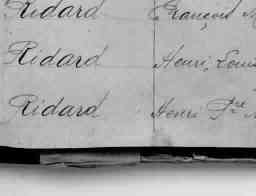 Ridard François
Ridard Henri, Louis
Ridard Henri Pre